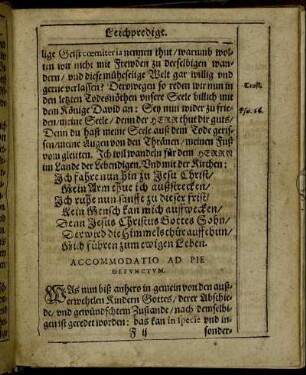 Leichpredigt.
lige Geist cœmiteria nennen thut / warumb wol-
ten wir nicht mit Frewden zu derselbigen wan-
dern / vnd diese mühselige Welt gar willig vnd
gerne verlassen? Derowegen so reden wir nun in
den letzten Todesnöthen vnsere Seele billich mit
dem Könige David an: Sey nun wider zu frie-
den / meine Seele / denn der HERR thut dir guts /
Denn du hast meine Seele auß dem Tode geris-
sen / meine Augen von den Thränen / meinen Fuß
vom gleiten. Ich wil wandeln für dem HERRN
im Lande der Lebendigen. Vnd mit der Kirchen:
Ich fahre nun hin zu Jesu Christ /
Mein Arm thue ich außstrecken /
Ich ruhe nun sanffte zu dieser frist /
Kein Mensch kan mich auffwecken /
Denn Jesus Christus Gottes Sohn /
Der wird die Himmelsthür auffthun /
Mich führen zum ewigen Leben.
Trost.
Psa. 116.
ACCOMMODATIO AD PIE
DEFUNCTUM.
WAs nun biß anhero in gemein von den auß-
erwehlten Kindern Gottes / derer Abschie-
de / vnd gewündschtem Zustande / nach demselbi-
gen ist geredet worden: das kan in specie vnd in-
F ij
sonder-